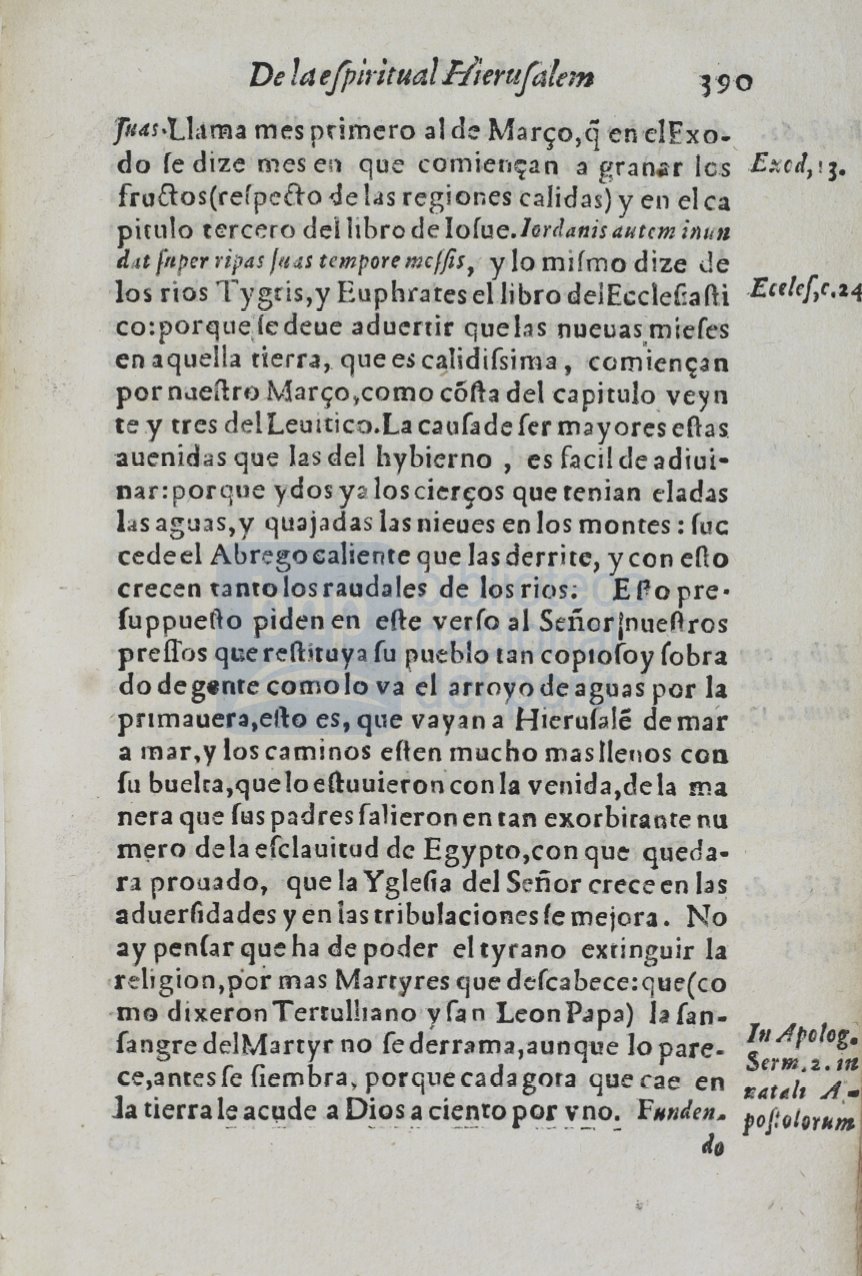 De la eſpiritual Hieruſalem 390
ſuas. Llama mes primero al de Março, q̃ en el Exo-
do ſe dize mes en que comiençan a granar los
Exod, 13.
fructos (reſpecto de las regiones calidas) y en el ca
pitulo tercero del libro de Ioſue. Iordanis autem inun
dat ſuper ripas ſuas tempore meſſis, y lo miſmo dize de
los rios Tygris, y Euphrates el libro del Eccleſiaſti
Ecclеſ, c. 24
co: porque ſe deue aduertir que las nueuas mieſes
en aquella tierra, que es calidiſsima, comiençan
por nueſtro Março, como cõſta del capitulo veyn
te y tres del Leuitico. La cauſa de ſer mayores eſtas
auenidas que las del hybierno, es facil de adiui-
nar: porque ydos ya los cierços que tenian eladas
las aguas, y quajadas las nieues en los montes: ſuc
cede el Abrego caliente que las derrite, y con eſto
crecen tanto los raudales de los rios. Eſto pre-
ſuppueſto piden en eſte verſo al Señor nueſtros
preſſos que reſtituya ſu pueblo tan copioſo y ſobra
do de gente como lo va el arroyo de aguas por la
primauera, eſto es, que vayan a Hieruſalẽ de mar
a mar, y los caminos eſten mucho mas llenos con
ſu buelta, que lo eſtuuieron con la venida, de la ma
nera que ſus padres ſalieron en tan exorbitante nu
mero de la eſclauitud de Egypto, con que queda-
ra prouado, que la Ygleſia del Señor crece en las
aduerſidades y en las tribulaciones ſe mejora. No
ay penſar que ha de poder el tyrano extinguir la
religion, por mas Martyres que deſcabece: que (co
mo dixeron Tertulliano y ſan Leon Papa) la ſan-
ſangre del Martyr no ſe derrama, aunque lo pare-
ce, antes ſe ſiembra, porque cada gota que cae en
la tierra le acude a Dios a ciento por vno. Funden-
In Apolog.
Serm. 2. in
natali A-
poſtolorum
do